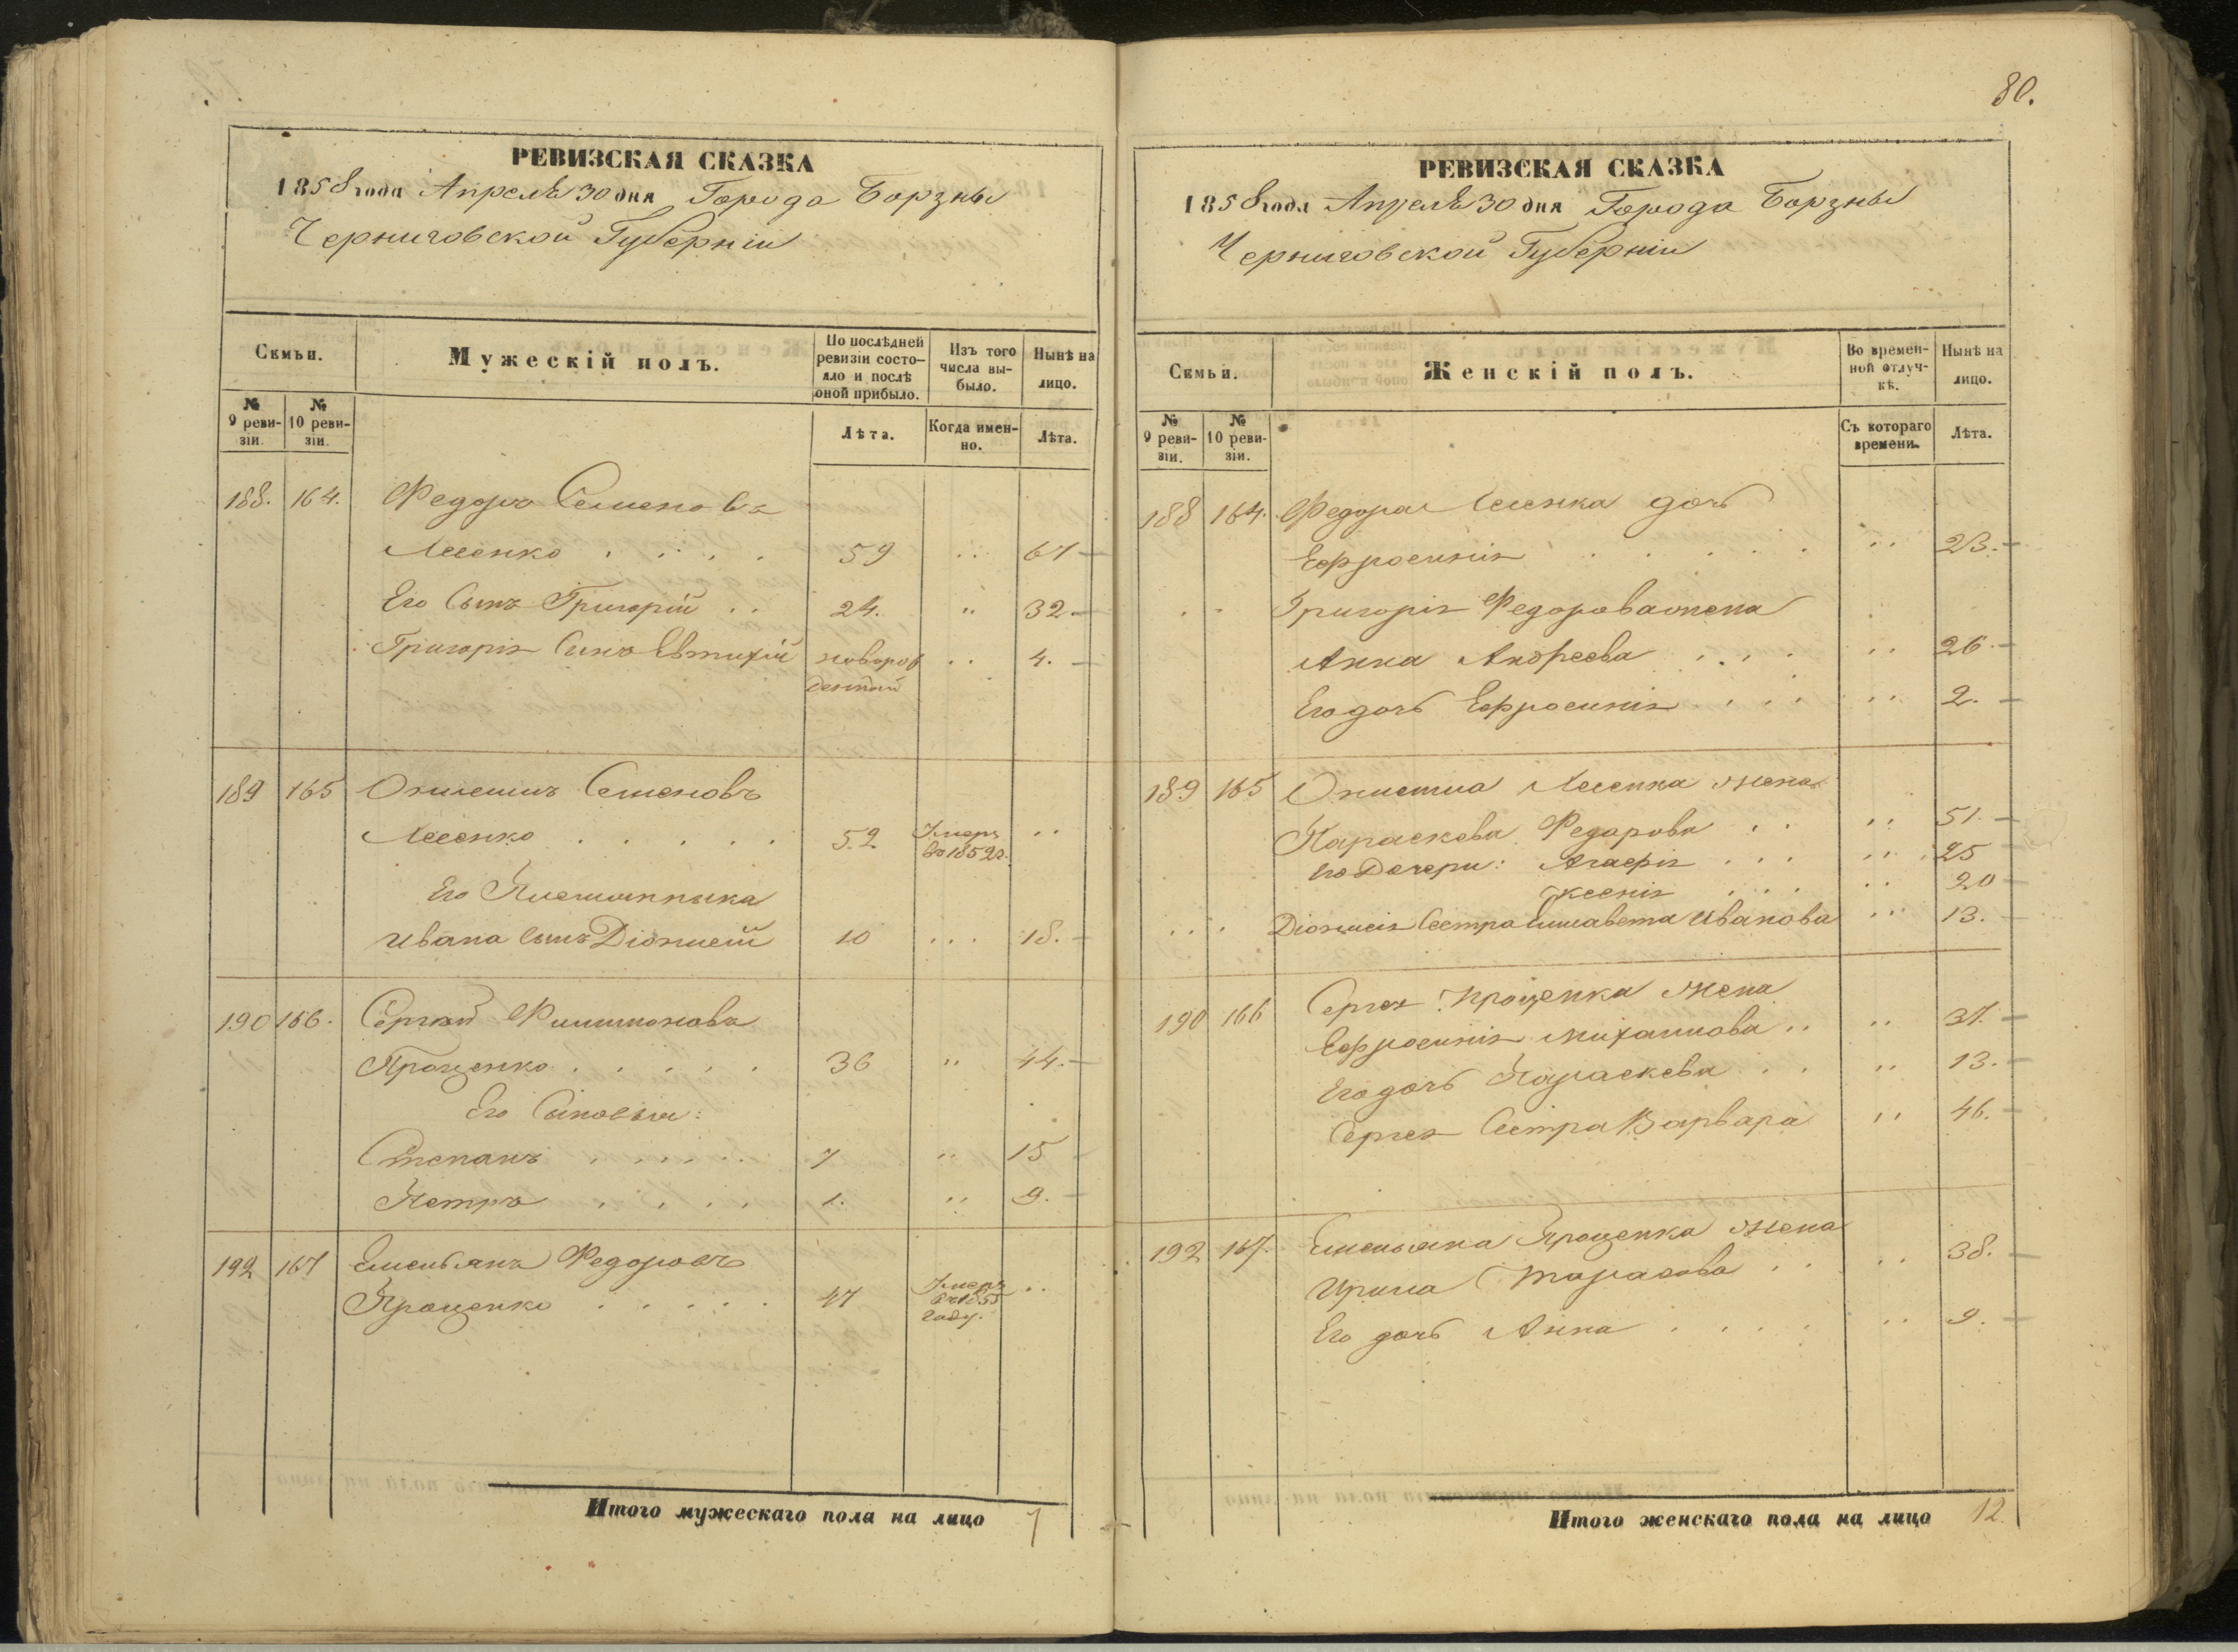 РЕВИЗСКАЯ СКАЗКА
1858 года Апреля 30 дня Города Борзны
Черниговской Губерніи
Семьи.
Мужескій полъ.
По послѣдней ревизіи состояло и послѣ оной прибыло.
Изъ того числа выбыло.
Нынѣ на лицо.
№ 9 ревизіи.
№ 10 ревизіи.
Лѣта.
Когда именно.
Лѣта.
188. 164. Федоръ Семеновъ
Лесенко . . . . 59 .. 67
Его Сынъ Григорій .. 24. .. 32
Григорія Сынъ Евтихій новорож .. 4.
денный
189 165 Онисимъ Семеновъ
Лесенко . . . . . 52 Умеръ въ 1852г. ..
Его Племянника
Ивана сынъ Діонисій 10 ... 18.
190 166. Сергѣй Филимоновъ
Проценко . . . . . 36 .. 44.
Его Сыновья:
Степанъ . . . . . . 7 .. 15
Петръ . . . . 1. .. 9.
192 167 Емельянъ Федоровъ
Проценко . . . . . 47 Умеръ въ 1855 году. ..
Итого мужескаго пола на лицо 7
80.
РЕВИЗСКАЯ СКАЗКА
1858 года Апреля 30 дня Города Борзны
Черниговской Губерніи
Семьи.
Женскій полъ.
Во временной отлучкѣ.
Нынѣ на лицо.
№ 9 ревизіи.
№ 10 ревизіи.
Съ котораго времени.
Лѣта.
188 164. Федора Лесенка дочь
Ефросинія . . . . . .. 23.
Григорія Федорова жена
Анна Андреева . . . . .. 26
Его дочь Ефросинія . . . .. 2.
189 165 Онисима Лесенка жена
Параскева Федорова . . .. 51.
Его Дочери: Агафія . . . .. 25
Ксенія . . . .. 20
Діонисія Сестра Елисавета Иванова .. 13.
190 166 Сергея Проценка жена
Ефросинія Михайлова .. .. 37.
Его дочь Параскева . . .. 13.
Сергея Сестра Варвара .. 46.
192 167. Емельяна Проценка жена
Ирина Тарасова . . .. 38.
Его дочь Анна . . . . .. 9.
Итого женскаго пола на лицо 12.